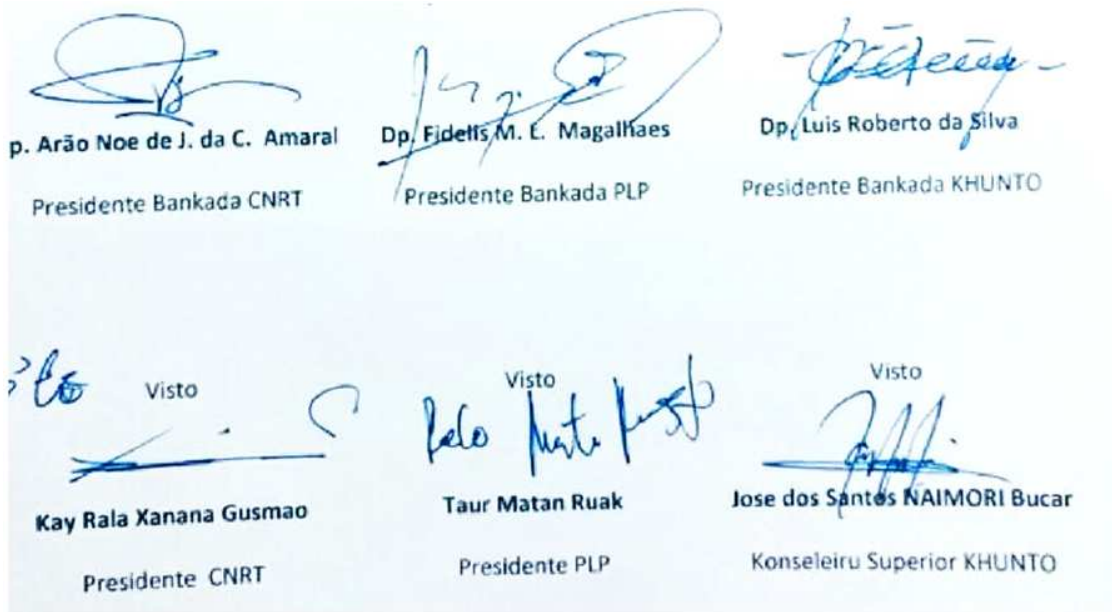 p. Arão Noe de J. da C. Amaral
Presidente Bankada CNRT
Dp. Fidelis M. E. Magalhaes
Presidente Bankada PLP
Dp. Luis Roberto da Silva
Presidente Bankada KHUNTO
Visto
Kay Rala Xanana Gusmao
Presidente CNRT
Visto
Taur Matan Ruak
Presidente PLP
Visto
Jose dos Santos NAIMORI Bucar
Konseleiru Superior KHUNTO